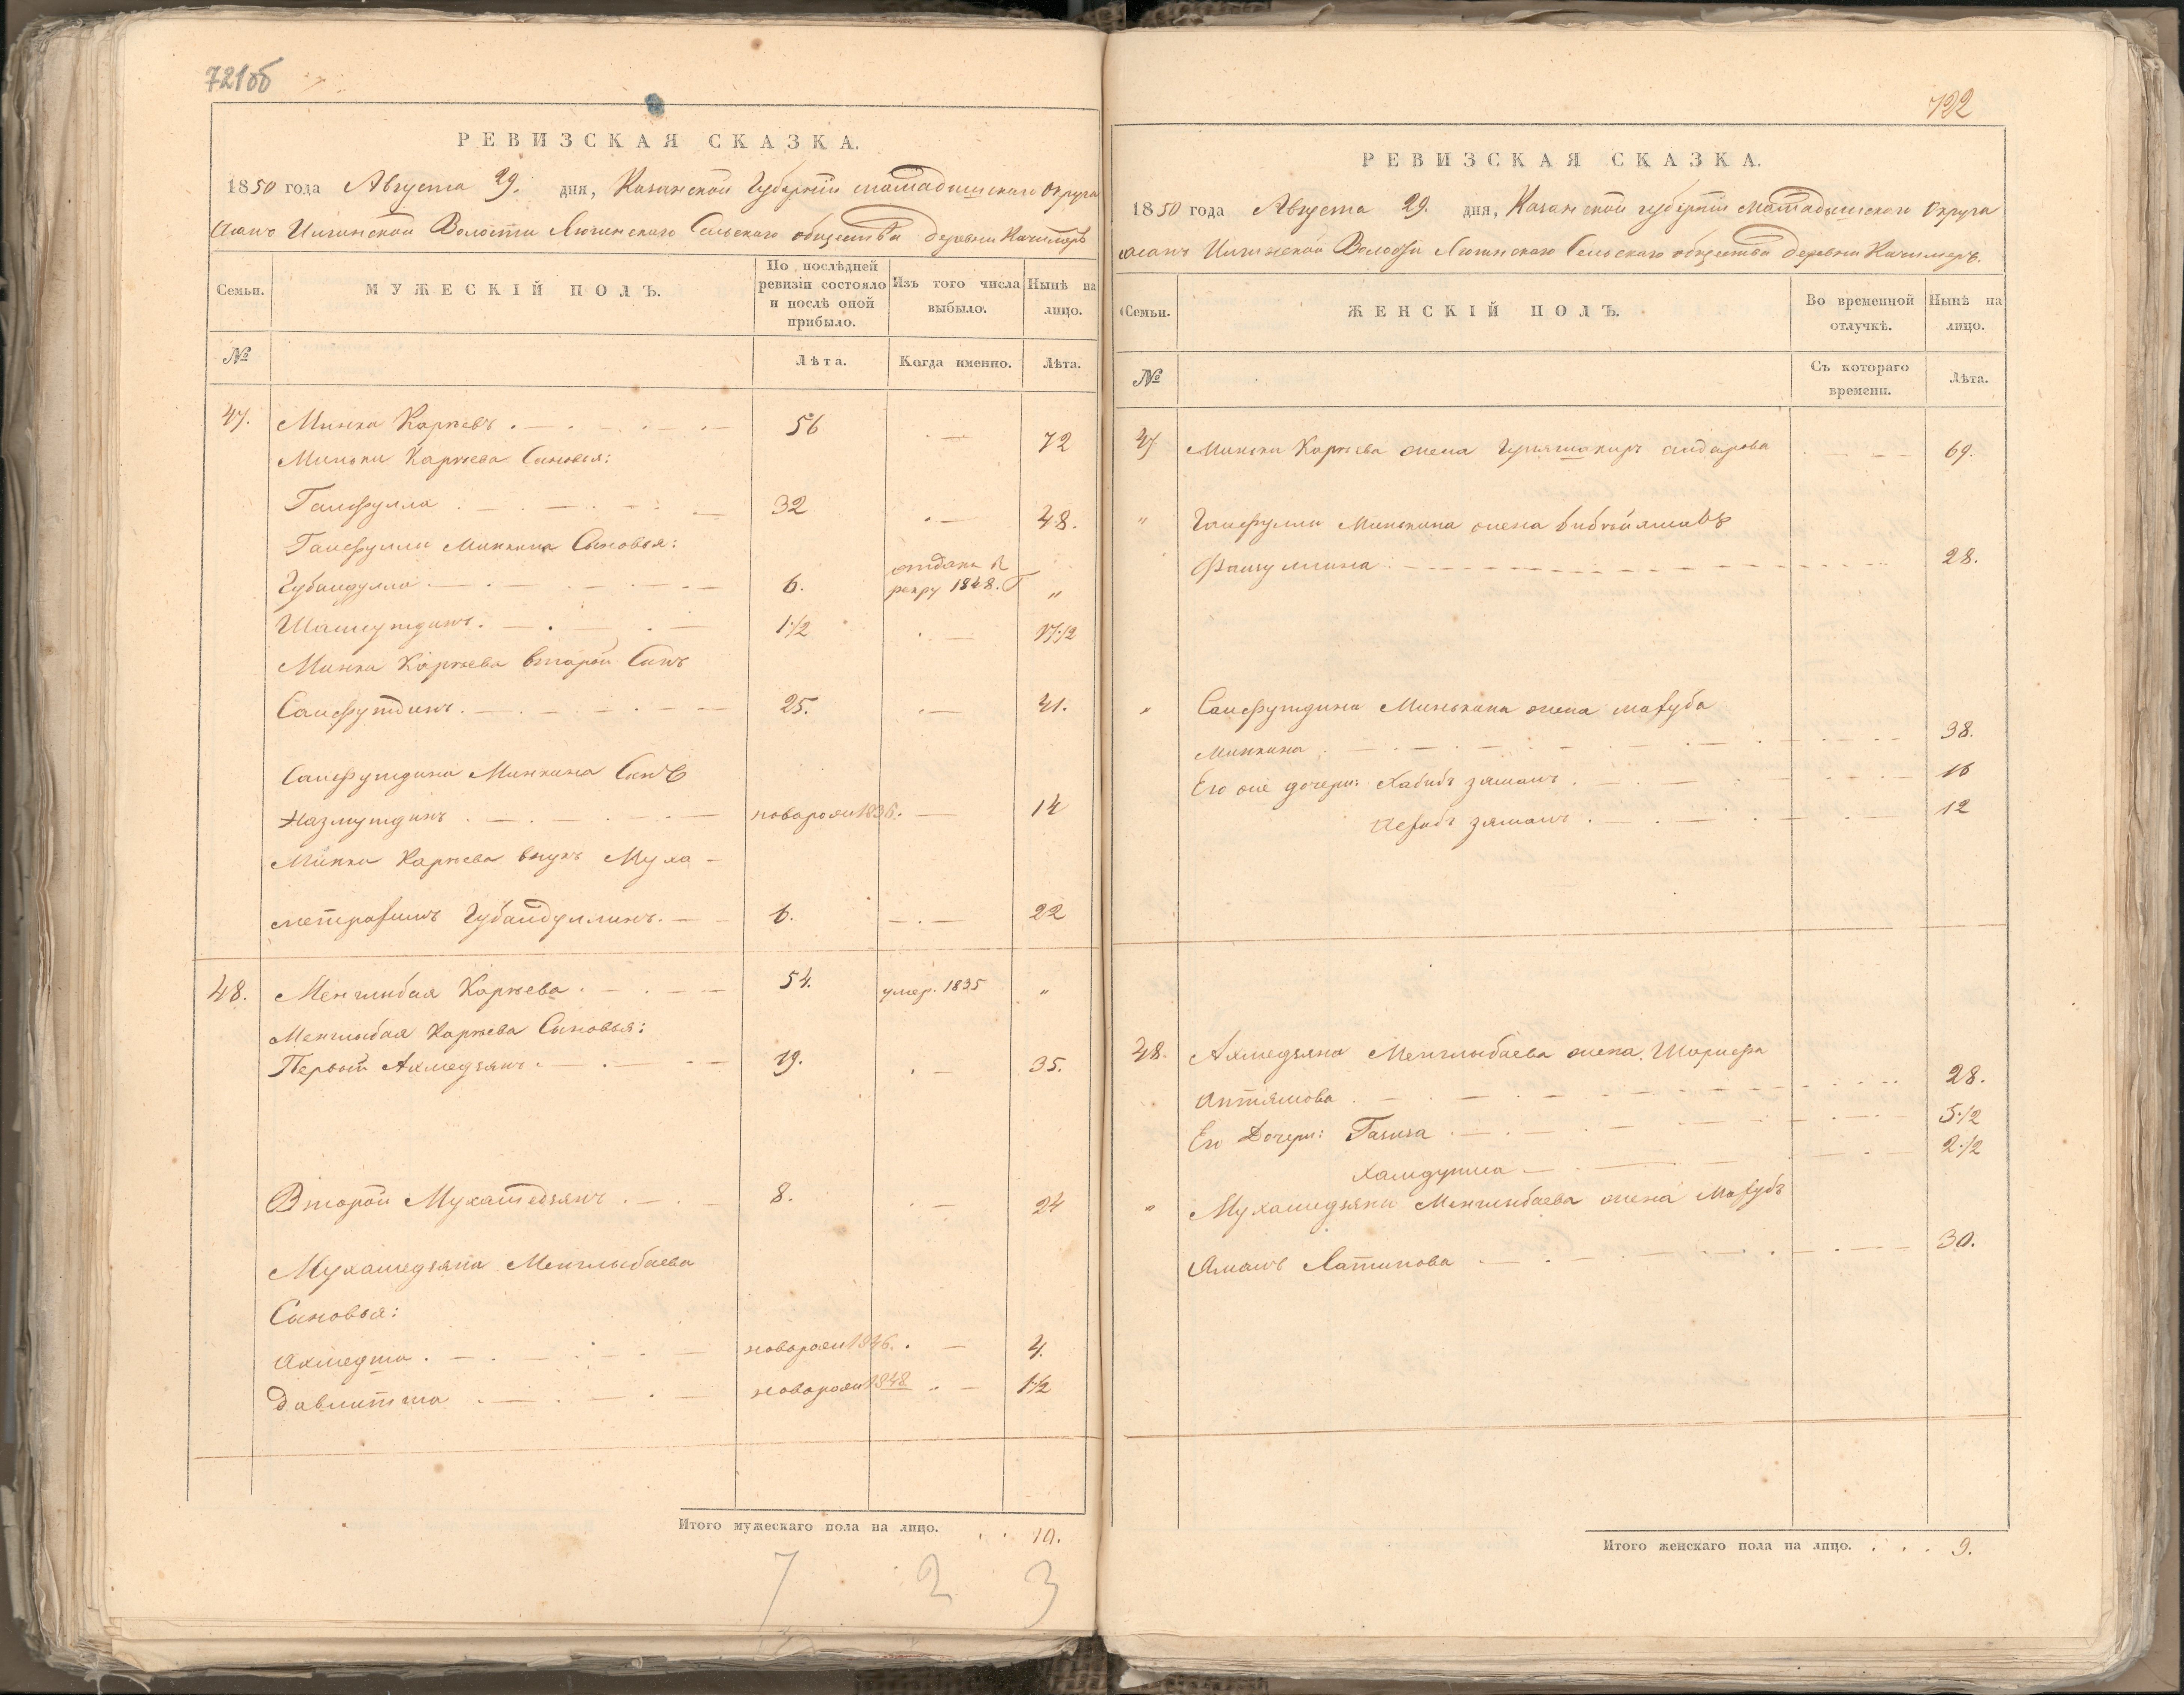 721об
РЕВИЗСКАЯ СКАЗКА.
1850 года Августа 29. дня, Казанской Губернии Мамадышскаго Округа
Волости Сельскаго общества деревни Качимеръ
Семьи.
МУЖЕСКІЙ ПОЛЪ.
По послѣдней ревизіи состояло и послѣ оной прибыло.
Изъ того числа выбыло.
Нынѣ на лицо.
№
Лѣта.
Когда именно.
Лѣта.
47. Минка Каріевъ 56 72
Миньки Каріева Сыновья:
Гайфулла 32 48.
Гайфуллы Минкина Сыновья:
Губайдулла 6. отданъ в
рекру 1848. Г "
Шамсутдинъ. 1 1/2 17 1/2
Минки Каріева второй Сынъ
Сайфутдинъ. 25. 41.
Сайфутдина Минкина Сынъ
Назмутдинъ новорож 1836. 14
Минки Каріева внукъ Муха-
метрахимъ Губайдуллинъ. 6. 22
48. Менглибая Каріева 54. умер. 1835 "
Менглыбая Каріева Сыновья:
Первый Ахмедзянъ 19. 35.
Второй Мухамедзянъ 8. 24
Мухамедзяна Менглыбаева
Сыновья:
Ахмедша новорож 1846. 4.
Давлетша новорож 1848 1 1/2
Итого мужескаго пола на лицо. . . 10.
7 2 3
722
РЕВИЗСКАЯ СКАЗКА.
1850 года Августа 29. дня, Казанской губернии Мамадышскаго Округа
Волости Сельскаго общества деревни Качимеръ.
Семьи.
ЖЕНСКІЙ ПОЛЪ.
Во временной отлучкѣ.
Нынѣ на лицо.
№
Съ котораго времени.
Лѣта.
47 Миньки Каріева жена 69.
" Гайфуллы Минькина жена
28.
" Сайфутдина Минькина жена Махуба
Минкина 38.
Его же дочери: Хабибъ зямалъ 16
зямалъ 12
48. Ахмедзяна Менглыбаева жена Шарифа
28.
Его Дочери: Газиза 5 1/2
2 1/2
" Мухамедзяна Менглыбаева жена Махубъ
Ямалъ Латыпова 30.
Итого женскаго пола на лицо. . . . 9.